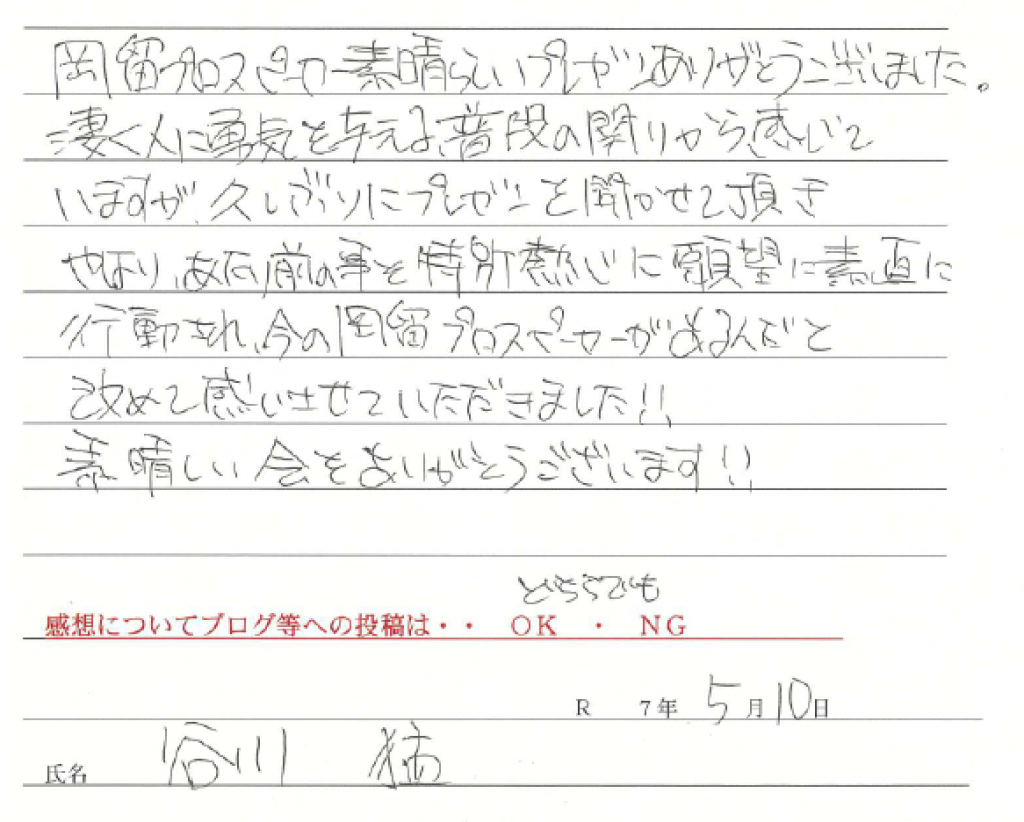 岡留プロスピーカー素晴らしいプレゼンありがとうございました。
凄く人に勇気を与える、普段の関りから感じて
いますが、久しぶりにプレゼンを聞かせて頂き
やはり、あたり前の事を特別熱心に願望に素直に
行動され、今の岡留プロスピーカーがあるんだと
改めて感じさせていただきました!!
素晴しい会をありがとうございます!!
どちらでも
感想についてブログ等への投稿は・・ OK ・ NG
R 7年 5月10日
氏名 谷川 猛